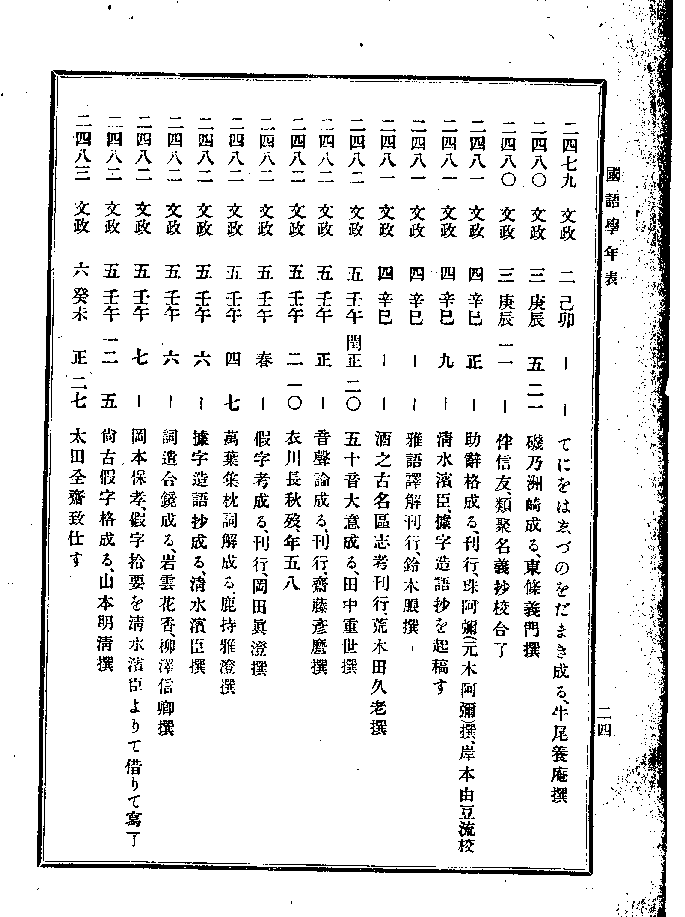 國語學年表
二四
二四七九 文政 二 己卯 ー ー てにをはゑづのをだまき成る、牛尾養庵撰
二四八〇 文政 三 庚辰 五 二一 磯乃洲崎成る、東條義門撰
二四八〇 文政 三 庚辰 一一 ー 伴信友、類聚名義抄校合了
二四八一 文政 四 辛巳 正 ー 助辭格成る、刊行、珠阿彌(元木阿彌)撰、岸本由豆流校
二四八一 文政 四 辛巳 九 ー 清水濱臣、據字造語抄を起稿す
二四八一 文政 四 辛巳 ー ー 雅語譯解刊行、鈴木朖撰
二四八一 文政 四 辛巳 ー ー 酒之古名區志考刊行荒木田久老撰
二四八二 文政 五 壬午 閏正 二〇 五十音大意成る、田中重世撰
二四八二 文政 五 壬午 正 ー 音聲論成る、刊行、齋藤彥麿撰
二四八二 文政 五 壬午 二 一〇 衣川長秋歿、年五八
二四八二 文政 五 壬午 春 ー 假字考成る、刊行、岡田眞澄撰
二四八二 文政 五 壬午 四 七 萬葉集枕詞解成る、鹿持雅澄撰
二四八二 文政 五 壬午 六 ー 據字造語抄成る、清水濱臣撰
二四八二 文政 五 壬午 六 ー 詞遣合鏡成る、岩雲花香、柳澤信卿撰
二四八二 文政 五 壬午 七 ー 岡本保孝、假字拾要を清水濱臣よりて借りて寫了
二四八二 文政 五 壬午 一二 五 尙古假字格成る、山本明淸撰
二四八三 文政 六 癸未 正 二七 太田全齋致仕す